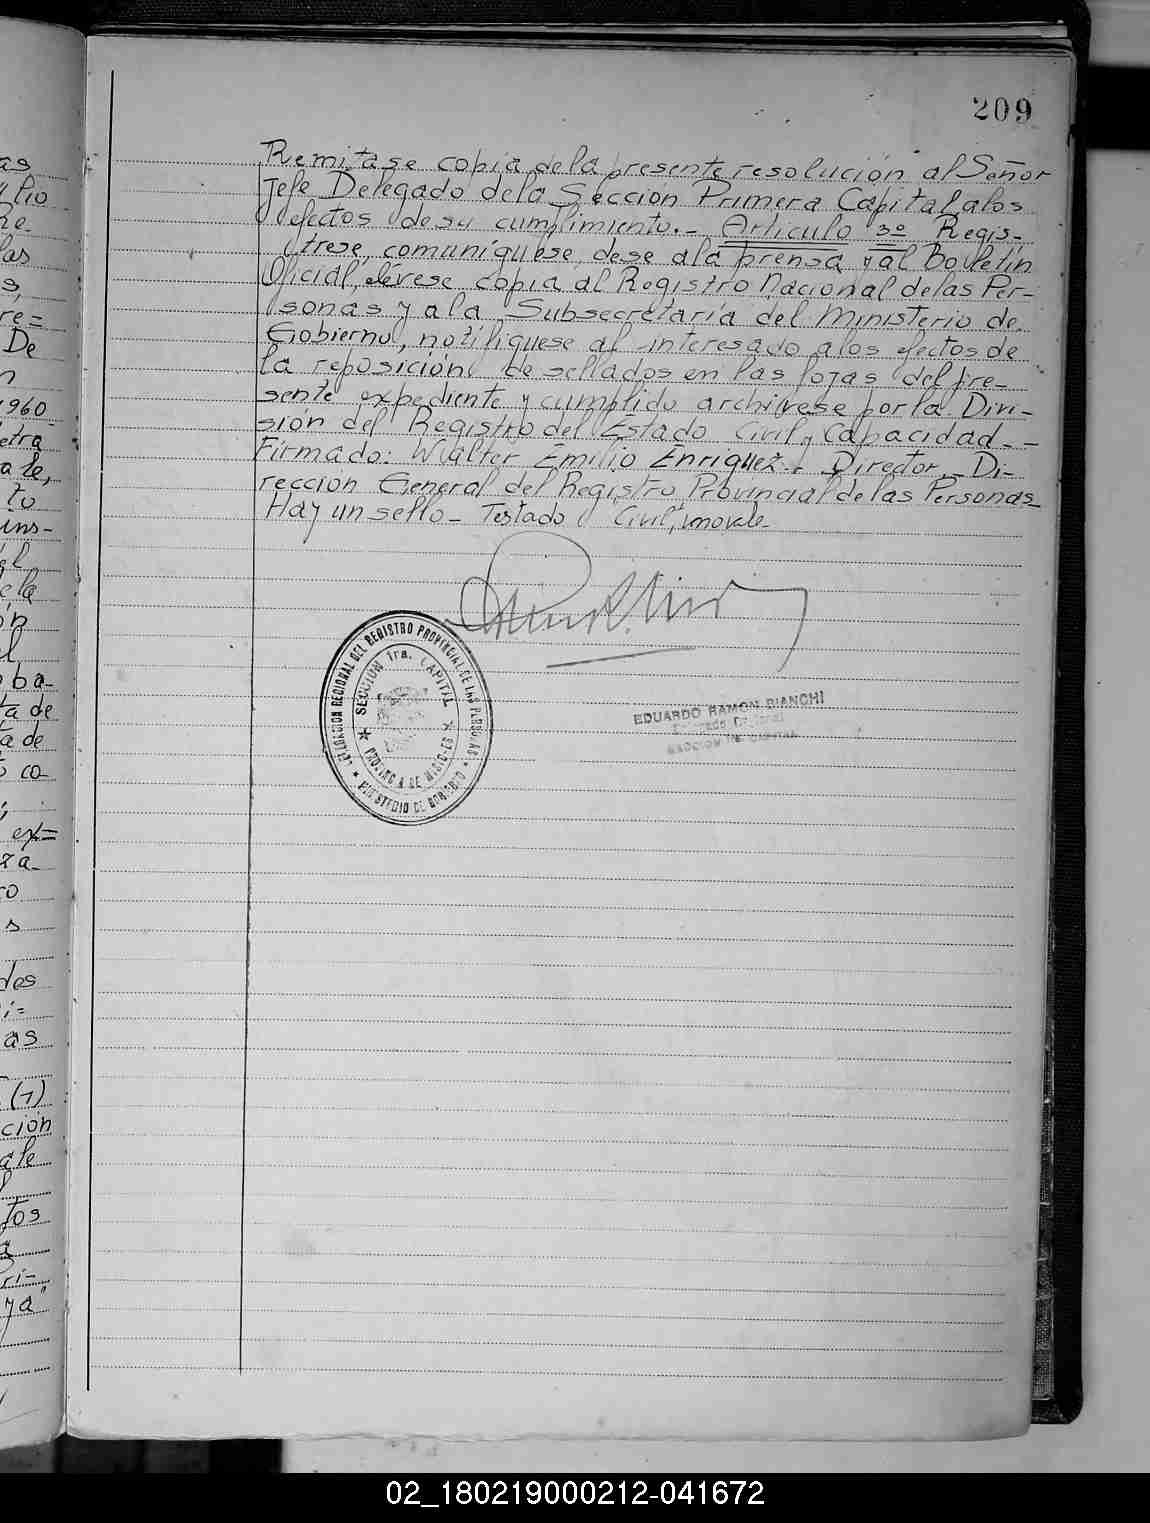 209
Remitase copia de la presente resolución al Señor
Jefe Delegado de la Sección Primera Capital a los
efectos de su cumplimiento.- Artículo 3º Regis-
trese, comuníquese, dese a la prensa y al Boletín
Oficial, elévese copia al Registro Nacional de las Per-
sonas y a la Subsecretaría del Ministerio de
Gobierno, notifíquese al interesado a los efectos de
la reposición de sellados en las fojas del pre-
sente expediente y cumplido archívese por la Divi-
sión del Registro del Estado Civil y Capacidad.-
Firmado: Walter Emilio Enriquez. Director.- Di-
rección General del Registro Provincial de las Personas
Hay un sello- Testado Civil, no vale
DELEGACION REGIONAL DEL REGISTRO PROVINCIAL DE LAS PERSONAS
SECCION 1ra. CAPITAL
PROVINCIA DE MISIONES
MINISTERIO DE GOBIERNO
EDUARDO RAMON BIANCHI
SECCION 1ra CAPITAL
as
re=
De
1960
etra
ale,
to
ins-
el
ela
ón
oba-
ta de
ta de
co-
ex=
za-
ro
s
des
as
(1)
ción
ale
tos
ri-
ya"
02_180219000212-041672